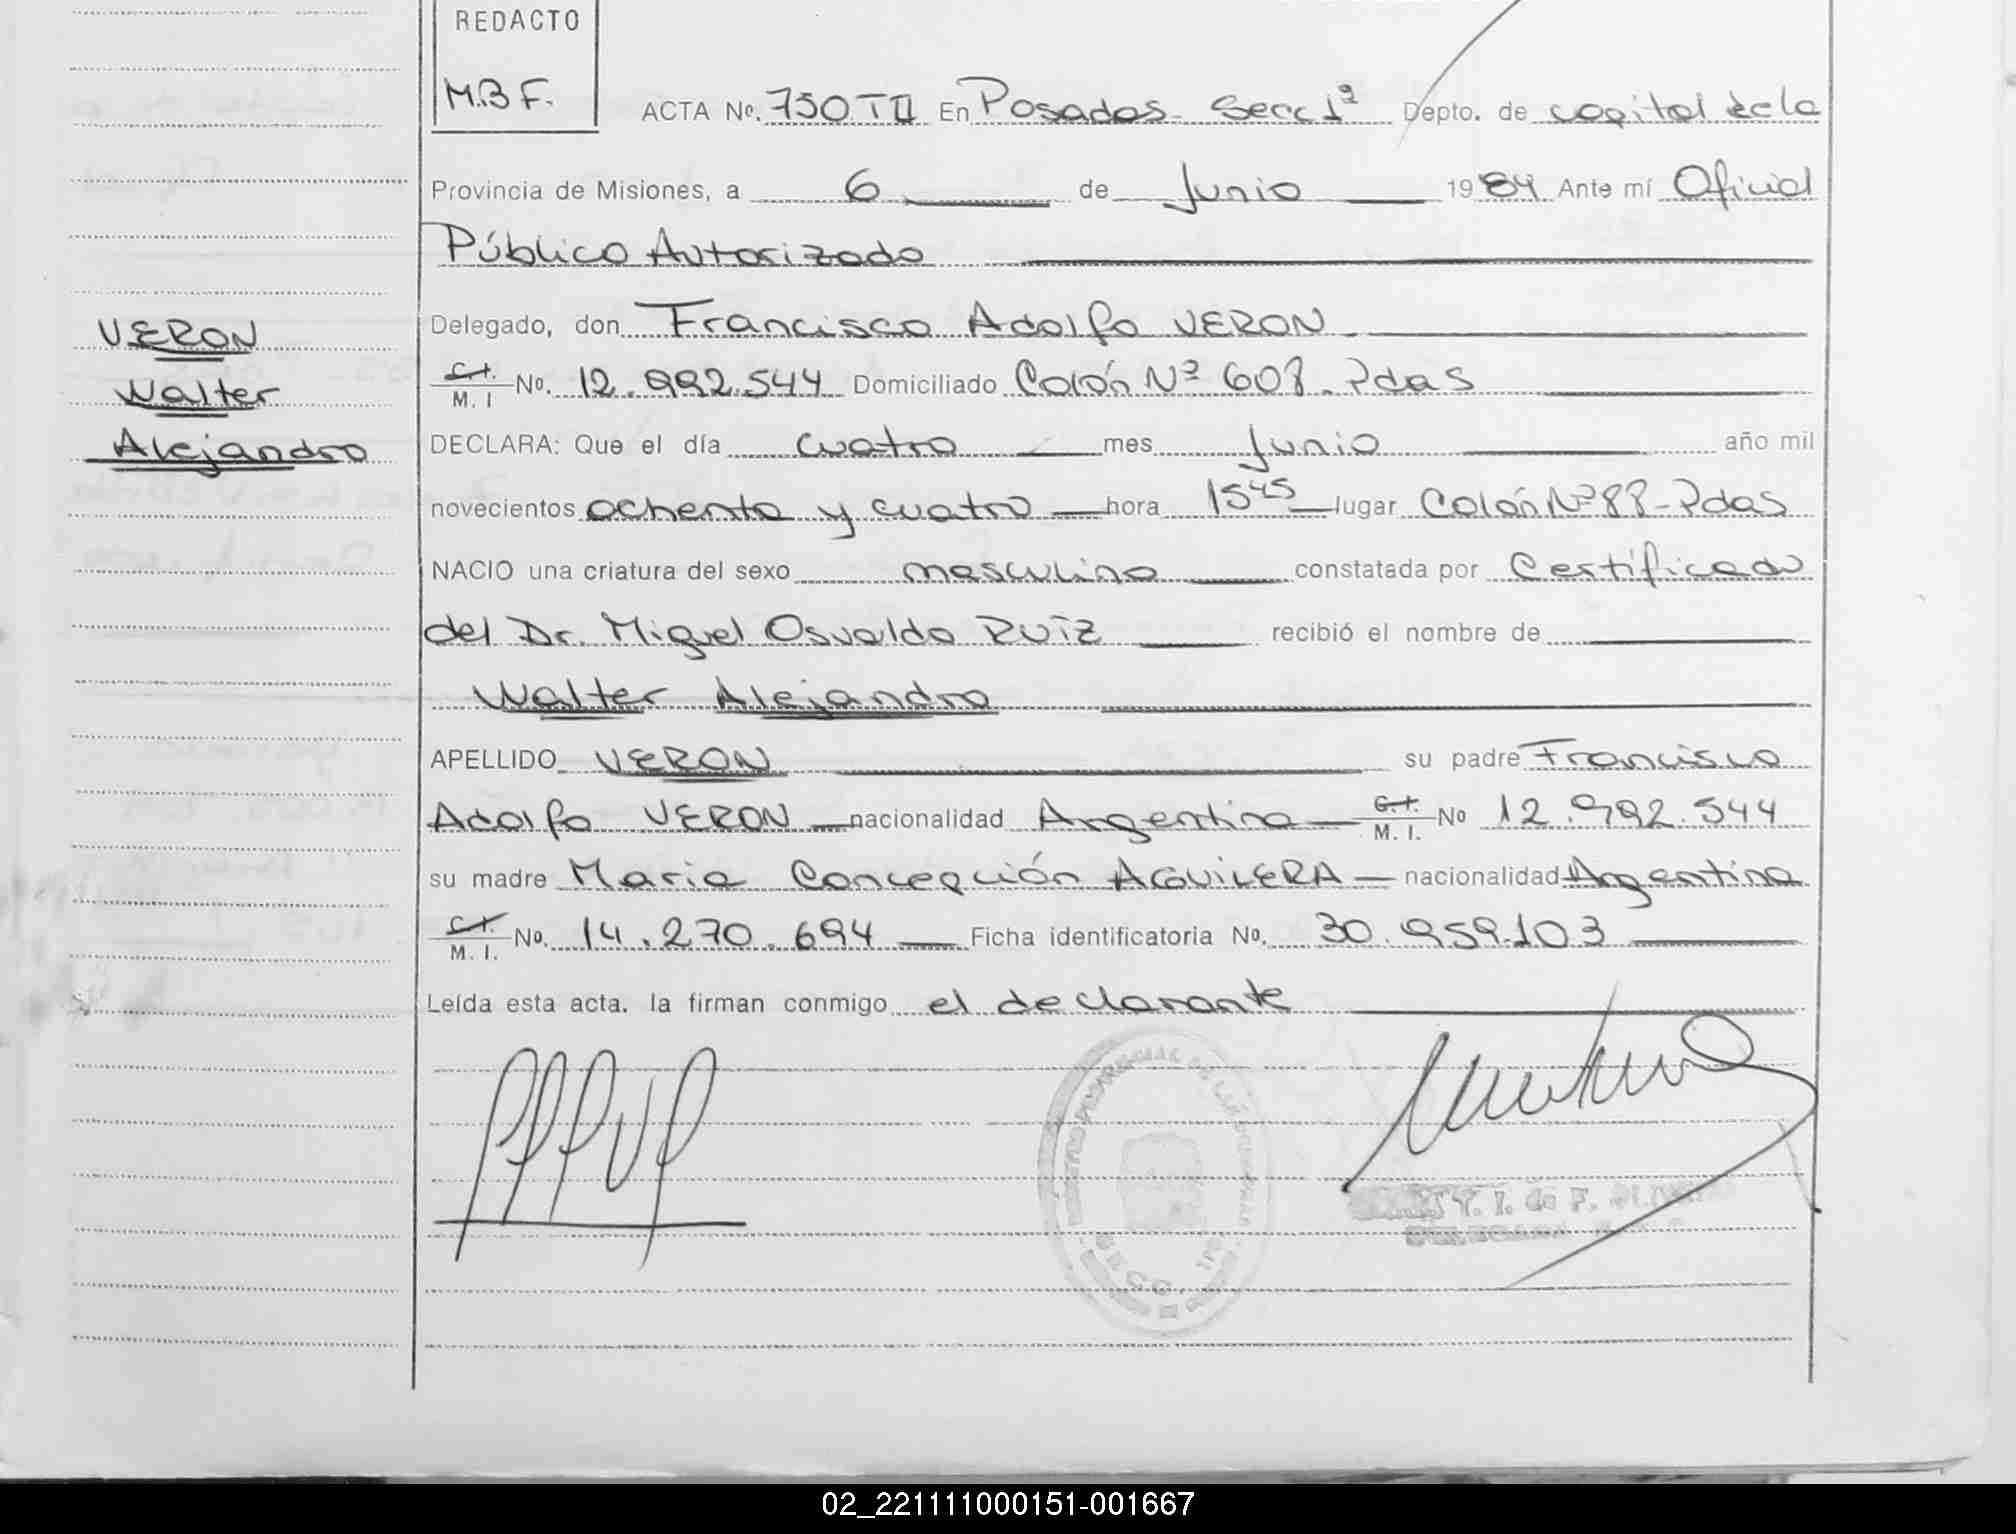 REDACTO
M.B F.
ACTA Nº. 750 T II En Posadas - Secc 1ª Depto. de capital de la
Provincia de Misiones, a 6 de Junio 1984 Ante mí Oficial
Público Autorizado
Delegado, don Francisco Adolfo VERON
C.I. M. I Nº. 12.992.544 Domiciliado Colón Nº 608 - Pdas
DECLARA: Que el día cuatro mes Junio año mil
novecientos ochenta y cuatro hora 15 45 lugar Colón Nº 88 - Pdas
NACIO una criatura del sexo masculino constatada por Certificado
del Dr. Miguel Osvaldo RUIZ recibió el nombre de
Walter Alejandro
APELLIDO VERON su padre Francisco
Adolfo VERON nacionalidad Argentina C.I. M. I. Nº 12.992.544
su madre Maria Concepción AGUILERA nacionalidad Argentina
C.I. M. I. Nº. 14.270.694 Ficha identificatoria Nº. 30.959.103
Leída esta acta. la firman conmigo el declarante
VERON
Walter
Alejandro
02_221111000151-001667